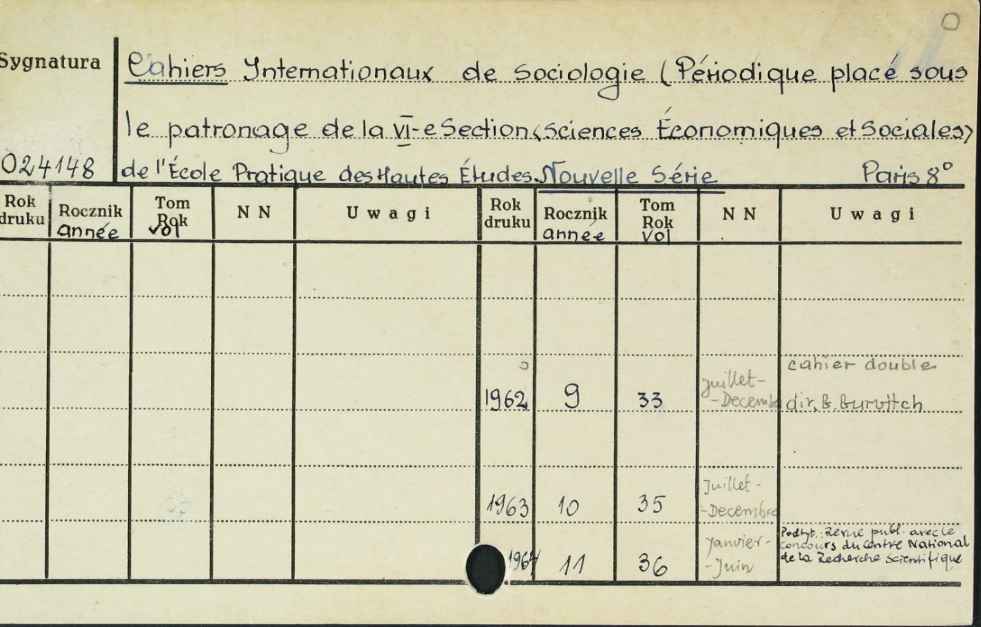 Sygnatura
Cahiers Internationaux de Sociologie (Périodique placé sous
le patronage de la VI-e Section <Sciences Économiques et Sociales>
024148 de l'École Pratique des Hautes Études. Nouvelle Série Paris 8°
Rok druku Rocznik année Tom Rok vol NN Uwagi Rok druku Rocznik année Tom Rok vol NN Uwagi
cahier double
1962 9 33 juillet- -Decemb dir.
1963 10 35 Juillet- -Decembre
1964 11 36 Janvier- -Juin
Podtyt.: Revue publ. avec le
concours du Centre National
de la Recherche Scientifique